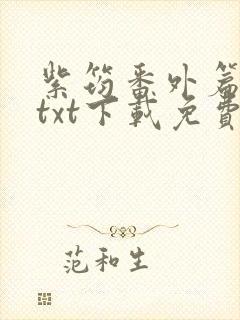 紫筠番外篇
txt下載免費
范和生